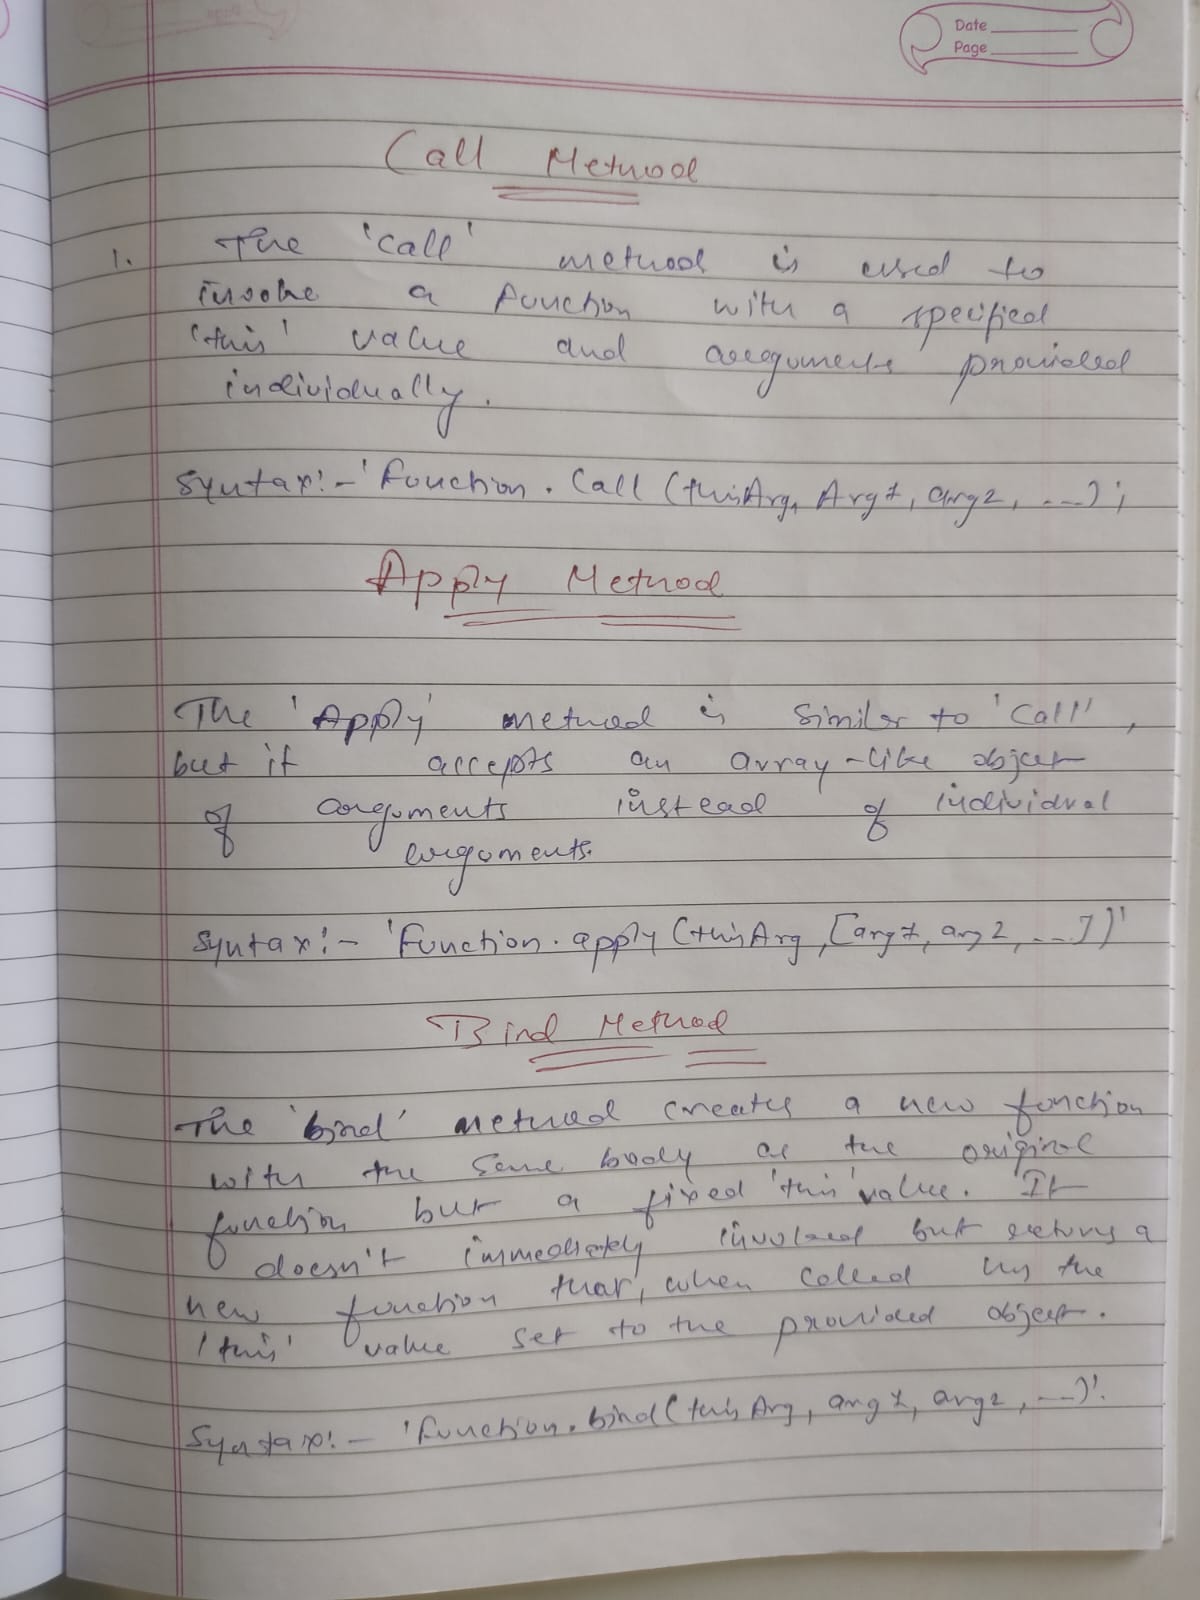 Date
Page
Call Method
1. The 'call' method is used to
invoke a function with a specified
'this' value and arguments provided
individually.
Syntax:- 'Function. Call (thisArg, Arg1, arg2, ...);
Apply Method
The 'Apply' method is similar to 'Call',
but it accepts an array-like object
of arguments instead of individual
arguments.
Syntax:- 'Function.apply (thisArg, [arg1, arg2, ...])'
Bind Method
The 'bind' method creates a new function
with the same body as the original
function but a fixed 'this' value. It
doesn't immediately invoked but returns a
new function that, when called the
'this' value set to the provided object.
Syntax:- 'Function.bind(thisArg, arg1, arg2, ...)'.